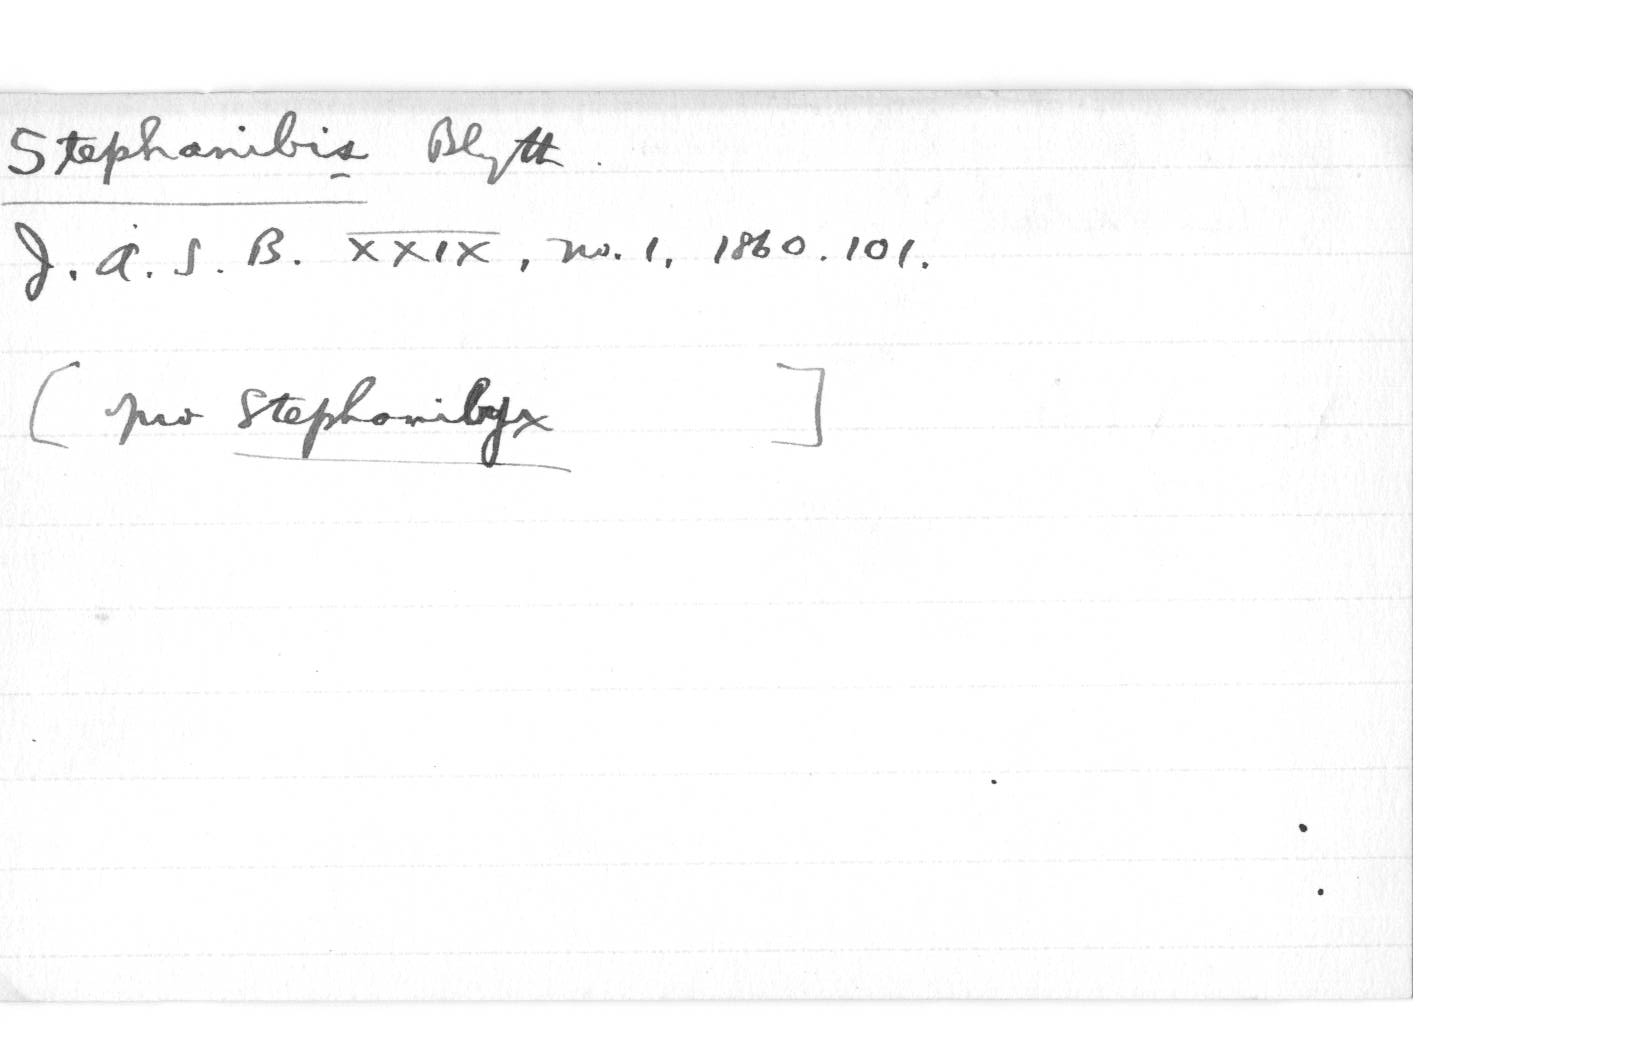 Stephanibis Blyth.
J. A. S. B. XXIX, no. 1, 1860. 101.
[ pro Stephanibyx ]